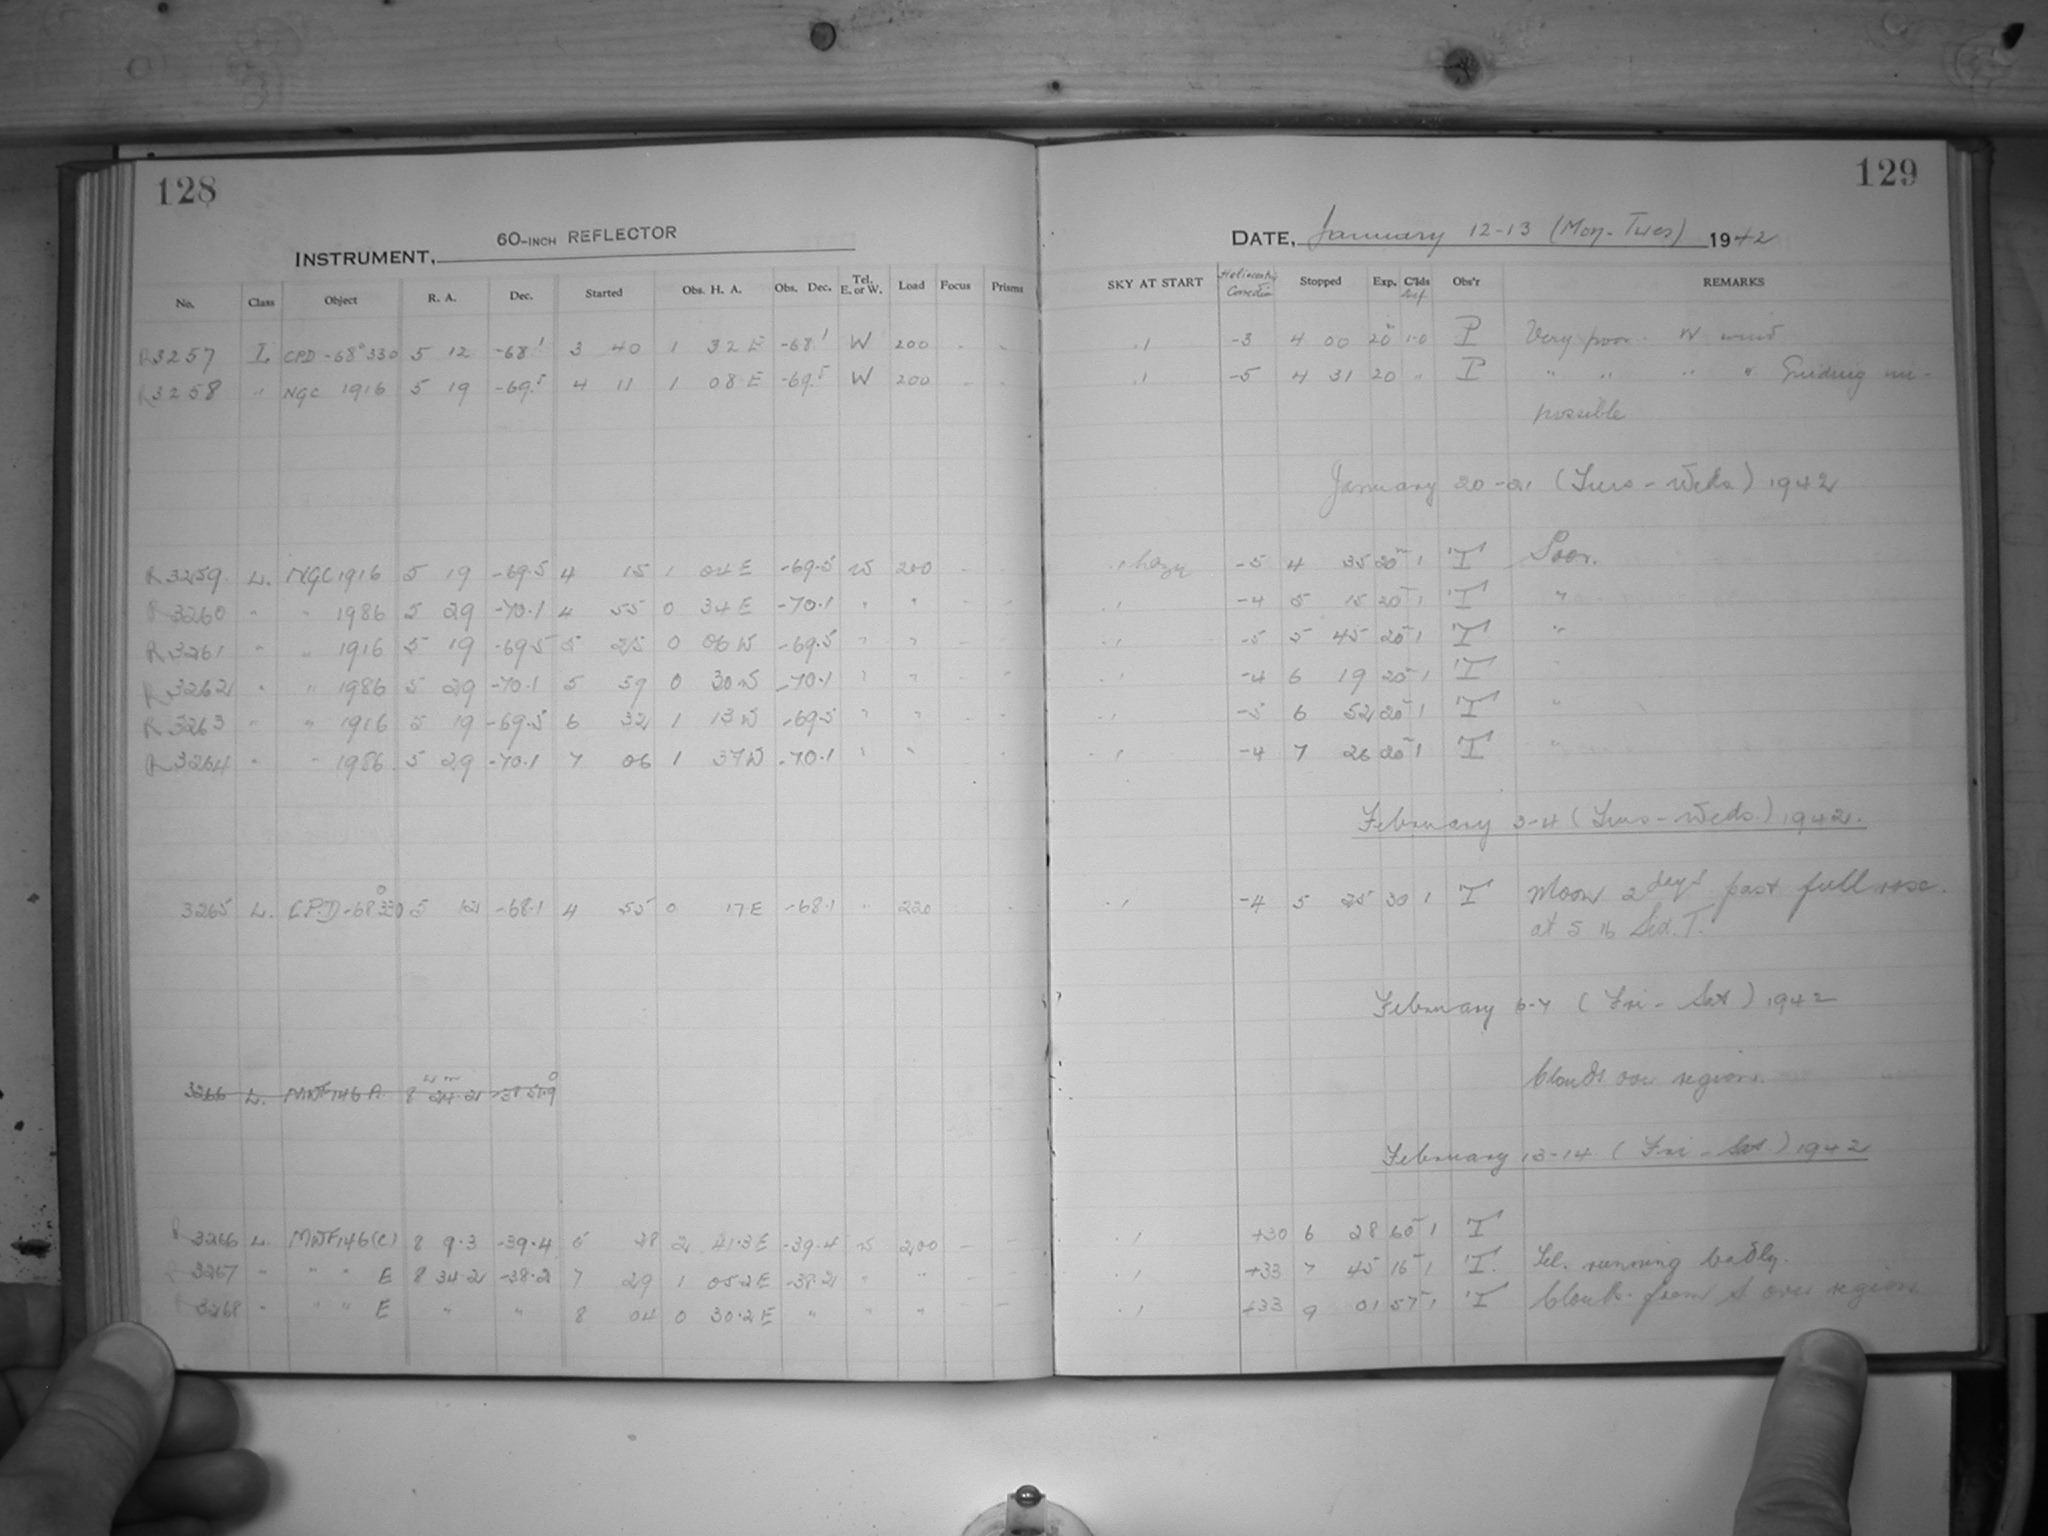 128
INSTRUMENT, 60-INCH REFLECTOR
No. Class Object R. A. Dec. Started Obs. H. A. Obs. Dec. Tel. E. or W. Load Focus Prisms
R3257 L CPD -68°330 5 12 -68.1 3 40 1 32 E -68.1 W 200 - -
R3258 " NGC 1916 5 19 -69.5 4 11 1 08 E -69.5 W 200 - -
R3259 L. NGC 1916 5 19 -69.5 4 15 1 04 E -69.5 W 200 -
R3260 " " 1986 5 29 -70.1 4 55 0 34 E -70.1 " " - -
R3261 " " 1916 5 19 -69.5 5 25 0 06 W -69.5 " " - -
R3262 " " 1986 5 29 -70.1 5 59 0 30 W -70.1 " " - -
R3263 " " 1916 5 19 -69.5 6 32 1 13 W -69.5 " " - -
R3264 " " 1986 5 29 -70.1 7 06 1 37 W -70.1 " " - -
3265 L. C.P.D -68°330 5 12 -68.1 4 55 0 17 E -68.1 " 220
3266 L. MWF146 A 8 24.2
R3266 L. MWF146(C) 8 9.3 -39.4 5 28 2 41.3 E -39.4 W 200 - -
3267 " " " E 8 34.2 -38.2 7 29 1 05.2 E -38.2 " " - -
3268 " " " E " " 8 04 0 30.2 E " " " - -
129
DATE, January 12-13 (Mon-Tues) 1942
SKY AT START Heliocentric Correction Stopped Exp. C'lds Obs'r REMARKS
.1 -3 4 00 20m 1-0 P Very poor. W wind
.1 -5 4 31 20 " P " " " " Guiding im-
possible
January 20-21 (Tues-Weds) 1942
.1 hazy -5 4 35 20m 1 T Poor.
.1 -4 5 15 20 1 T "
.1 -5 5 45 20 1 T "
.1 -4 6 19 20 1 T
.1 -5 6 52 20 1 T "
.1 -4 7 26 20 1 T "
February 3-4 (Tues-Weds.) 1942.
.1 -4 5 25 30 1 T Moon 2 days past full rose.
at 5 16 Sid. T.
February 6-7 (Fri-Sat) 1942
Clouds over region.
February 13-14 (Fri-Sat.) 1942
.1 +30 6 28 60 1 T
.1 +33 7 45 16 1 T. Tel. running badly.
.1 +33 9 01 57 1 T Clouds from S over region